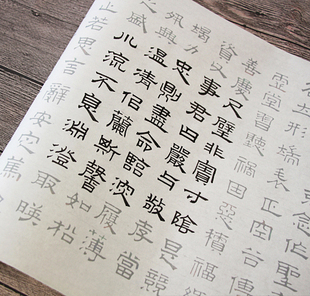 念作聖
立形端表正空谷
虛堂習聽禍因惡積福
善慶尺璧非寶寸陰是
資父事君曰嚴與敬孝當
力忠則盡命臨深履薄
夙興溫凊似蘭斯馨如松
之盛川流不息淵澄取映
止若思言辭安定